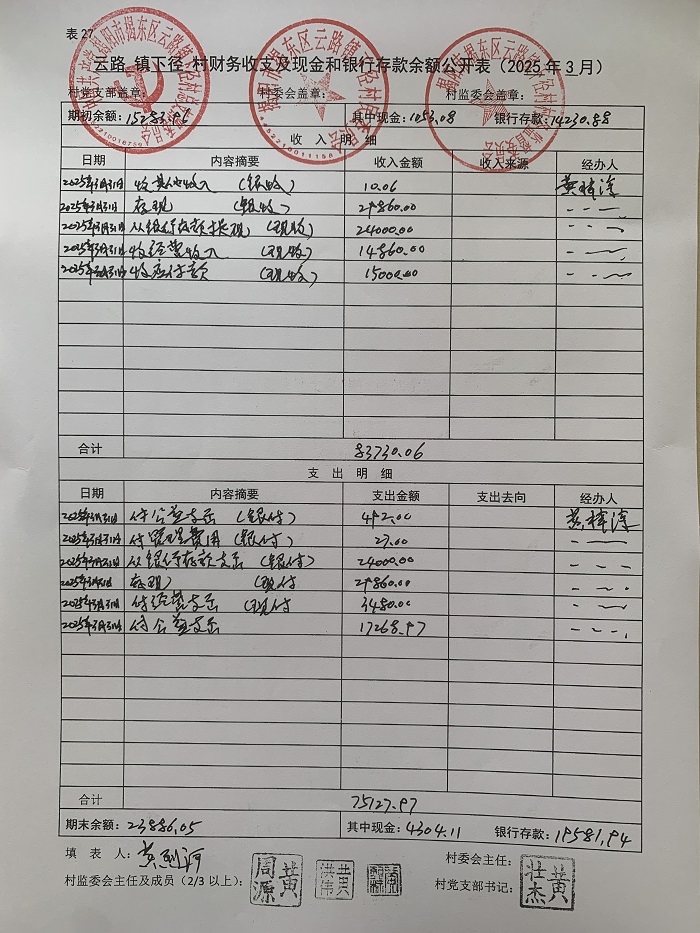 表 27
云路 镇下径 村财务收支及现金和银行存款余额公开表（2025 年 3 月）
村党支部盖章： 村委会盖章： 村监委会盖章：
期初余额：15283.96 其中现金：1053.08 银行存款：14230.88
收 入 明 细
日期 内容摘要 收入金额 收入来源 经办人
2025年3月31日 收其他收入 （银收） 10.06 黄
2025年3月31日 存现 （银收） 29860.00
2025年3月31日 从银行存款提现（现收） 24000.00
2025年3月31日 收经营收入 （现收） 14860.00
2025年3月31日 收应付款 （现收） 15000.00
合计 83730.06
支 出 明 细
日期 内容摘要 支出金额 支出去向 经办人
2025年3月31日 付公益支出 （银付） 492.00 黄
2025年3月31日 付管理费用（银付） 27.00
2025年3月31日 从银行存款支出（银付） 24000.00
2025年3月31日 存现） 现付 29860.00
2025年3月31日 付经营支出 （现付 3480.00
2025年3月31日 付公益支出 17268.97
合计 75127.97
期末余额：23886.05 其中现金：4304.11 银行存款：19581.94
填 表 人：黄 村委会主任：
村监委会主任及成员（2/3 以上）： 黄周源 黄洪伟 村党支部书记： 黄壮杰